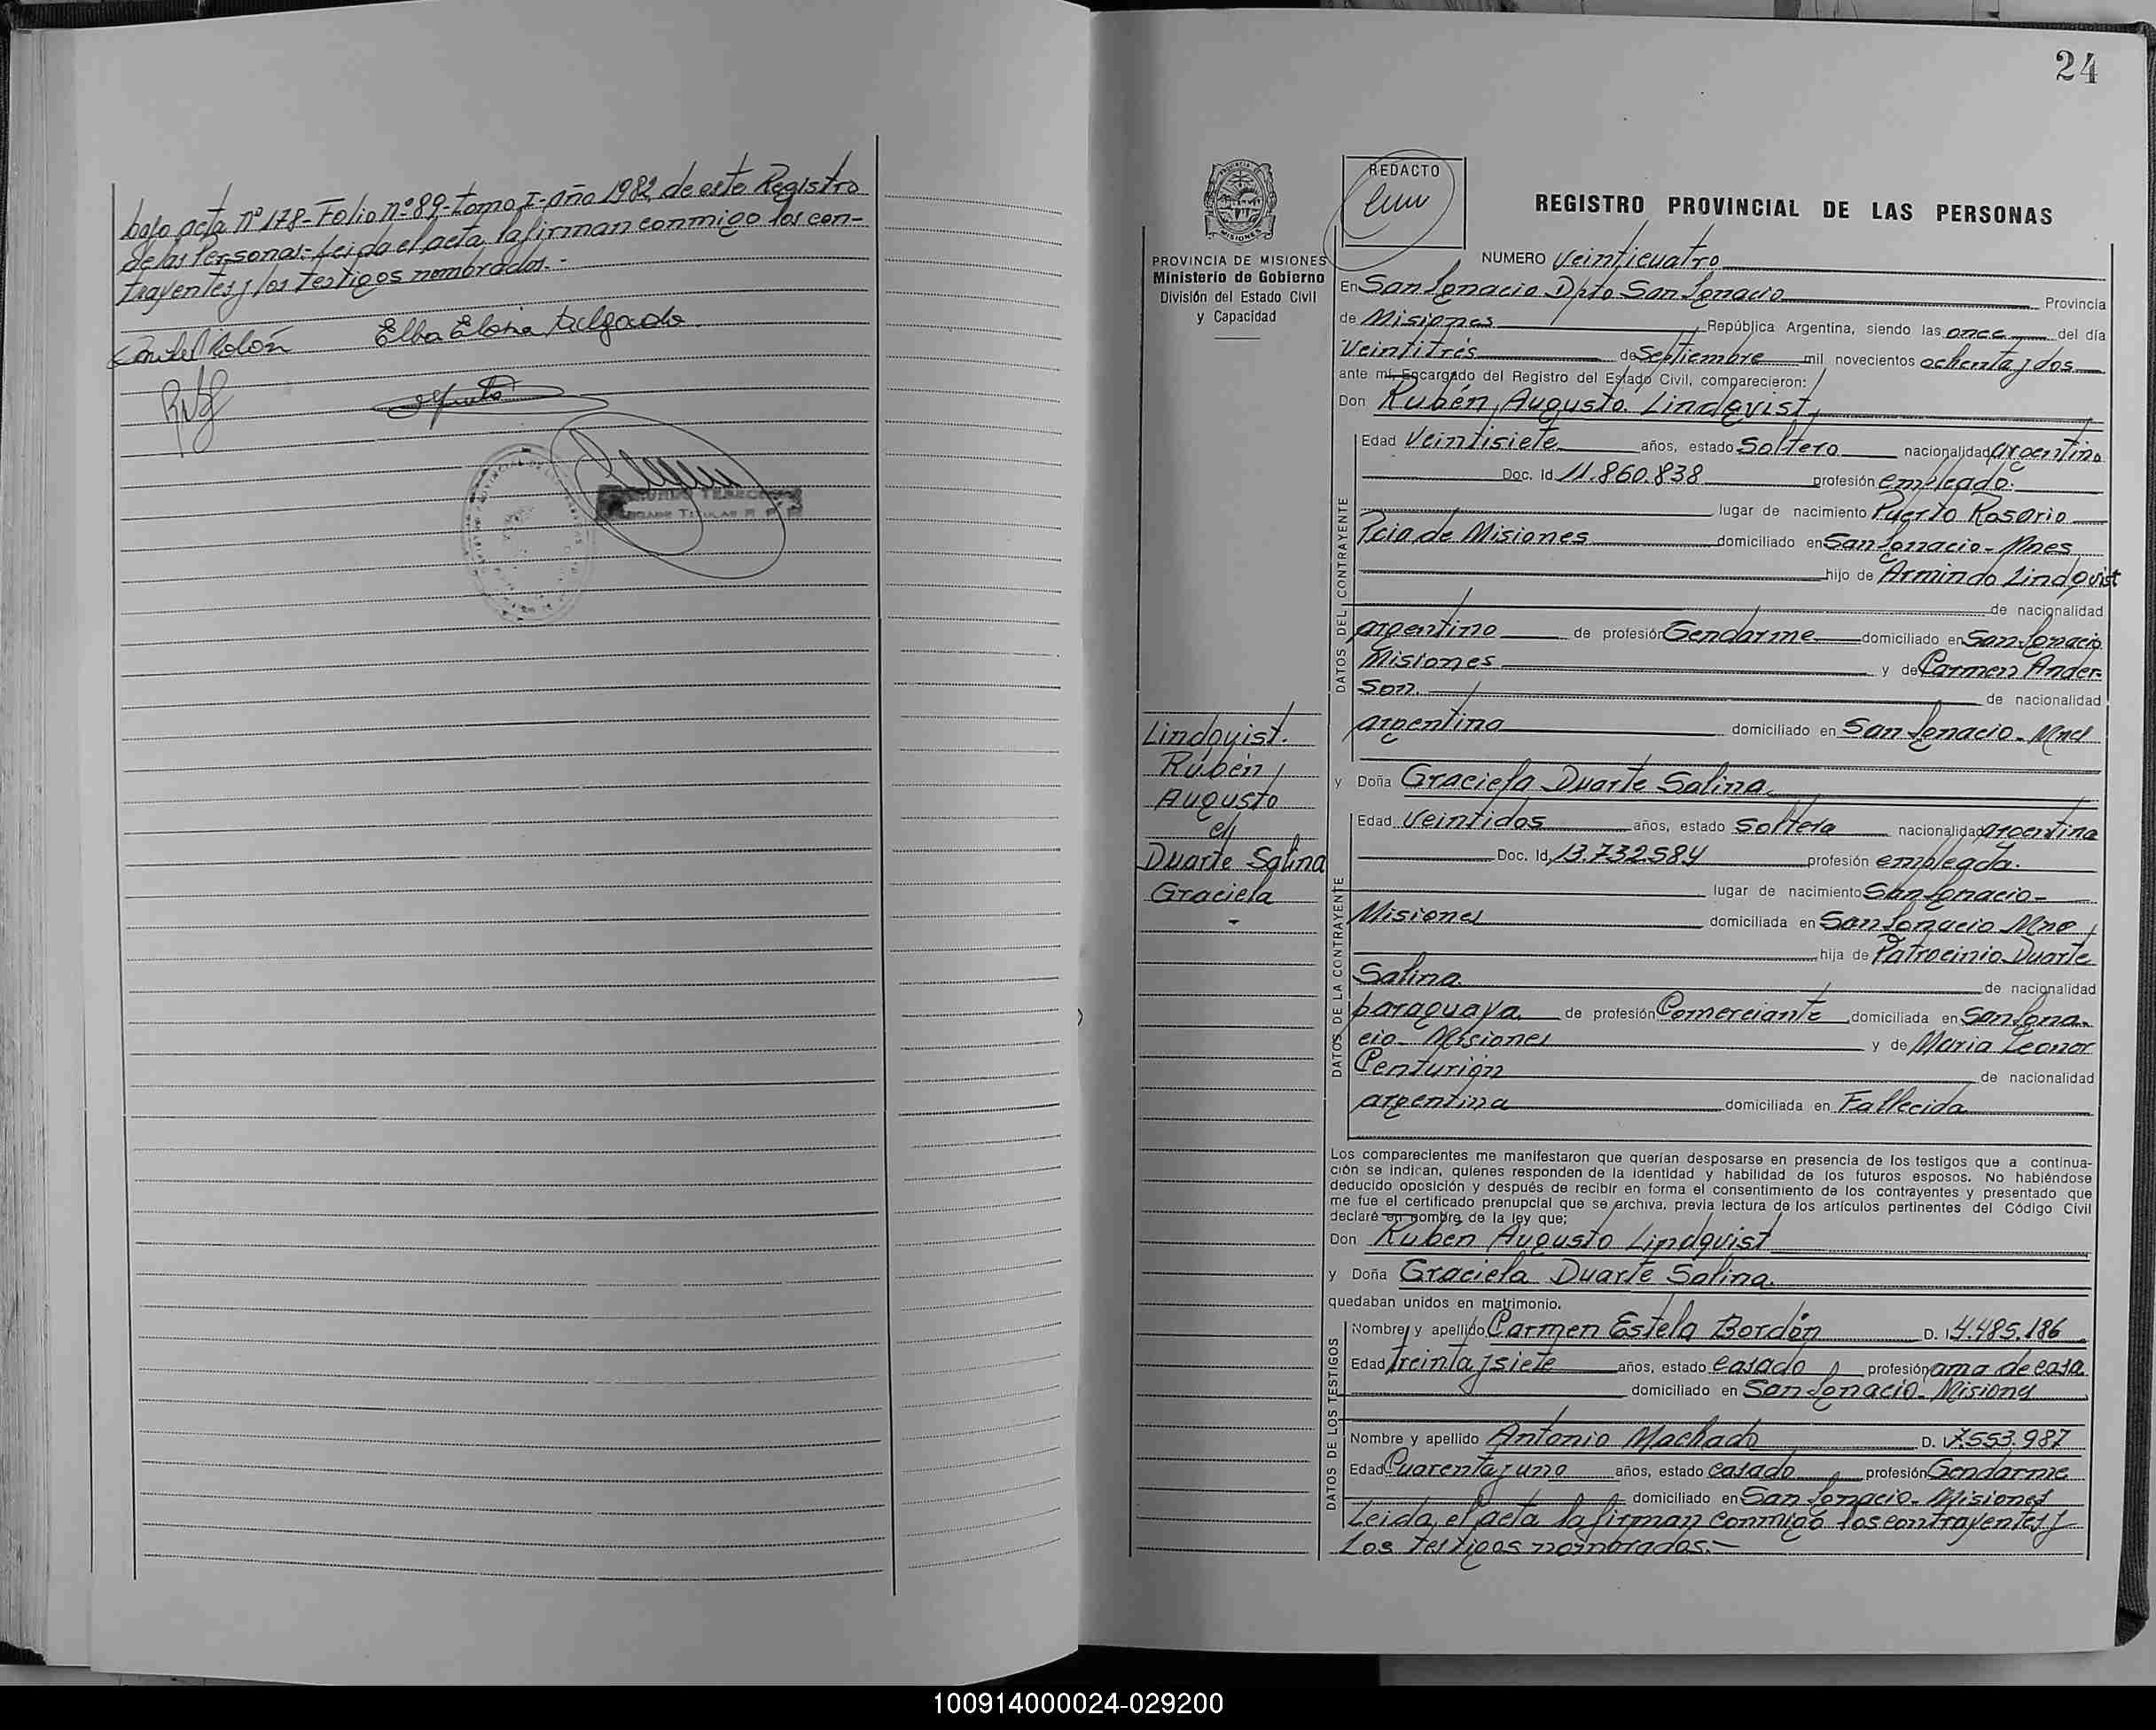 bajo acta nº 178- Folio nº 89- tomo I- Año 1982, de este Registro
de las Personas.- Leida el acta, la firman conmigo los con-
trayentes y los testigos nombrados.-
Elba Delgado
24
REDACTO
REGISTRO PROVINCIAL DE LAS PERSONAS
PROVINCIA DE MISIONES
Ministerio de Gobierno
División del Estado Civil
y Capacidad
NUMERO Veinticuatro
En San Ignacio Dpto San Ignacio Provincia
de Misiones República Argentina, siendo las once del día
Veintitrés de Septiembre mil novecientos ochenta y dos
ante mí, Encargado del Registro del Estado Civil, comparecieron:
Don Rubén Augusto Lindqvist
DATOS DEL CONTRAYENTE
Edad Veintisiete años, estado Soltero nacionalidad argentino
Doc. Id 11.860.838 profesión empleado.
lugar de nacimiento Puerto Rosario
Pcia de Misiones domiciliado en San Ignacio- Mnes
hijo de Armindo Lindqvist
de nacionalidad
argentino de profesión Gendarme domiciliado en San Ignacio
Misiones y de Carmen Ander-
son. de nacionalidad
argentina domiciliado en San Ignacio- Mnes
Lindqvist.
Rubén
Augusto
c/
Duarte Salina
Graciela
-
y Doña Graciela Duarte Salina.
DATOS DE LA CONTRAYENTE
Edad Veintidos años, estado Soltera nacionalidad argentina
Doc. Id. 13.732584 profesión empleada.
lugar de nacimiento San Ignacio-
Misiones domiciliada en San Ignacio Mnes
hija de Patrocinio Duarte
Salina. de nacionalidad
paraguaya de profesión Comerciante domiciliada en San Igna-
cio- Misiones y de Maria Leonor
Centurión de nacionalidad
argentina domiciliada en Fallecida
Los comparecientes me manifestaron que querían desposarse en presencia de los testigos que a continua-
ción se indican, quienes responden de la identidad y habilidad de los futuros esposos. No habiéndose
deducido oposición y después de recibir en forma el consentimiento de los contrayentes y presentado que
me fue el certificado prenupcial que se archiva, previa lectura de los artículos pertinentes del Código Civil
declaré en nombre de la ley que;
Don Ruben Augusto Lindqvist
y Doña Graciela Duarte Salina.
quedaban unidos en matrimonio.
DATOS DE LOS TESTIGOS
Nombre y apellido Carmen Estela Bordón D. I 4.485.186
Edad treinta y siete años, estado casado profesión ama de casa
domiciliado en San Ignacio- Misiones
Nombre y apellido Antonio Machado D. I. 7.553.987
Edad Cuarenta y uno años, estado casado profesión Gendarme
domiciliado en San Ignacio- Misiones
Leida el acta la firman conmigo los contrayentes y
los testigos nombrados.-
100914000024-029200